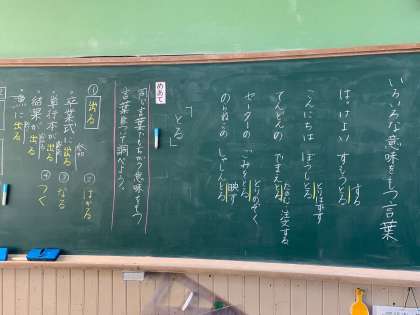 いろいろな意味をもつ言葉
はっけよい すもうとる
する
こんにちは ぼうしとる
とりはずす
てんどんの でまえとる
たのむ・注文する
セーターの ごみをとる
とりのぞく
のんちゃんの しゃしんとる
映す
「とる」
めあて
同じ言葉でもちがう意味をもつ
言葉を見つけて調べよう。
① 出る
・卒業式に出る
・単行本が出る
・結果が出る
・魚に出る
② はかる
③ なる
④ つく